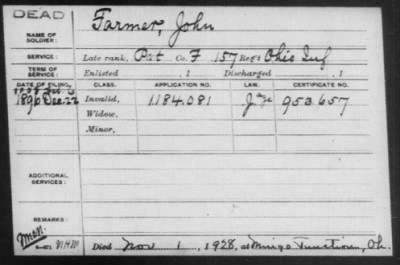 DEAD
NAME OF SOLDIER: Farmer, John
SERVICE: Late rank, Pvt Co. F 157 Reg't Ohio Inf
TERM OF SERVICE: Enlisted , 1 Discharged , 1
DATE OF FILING. CLASS. APPLICATION NO. LAW. CERTIFICATE NO.
1896 Dec. 22 Invalid, 1184.081 953.657
Widow,
Minor,
ADDITIONAL SERVICES:
REMARKS:
Died Nov 1, 1928, at Mingo Junction, Oh.